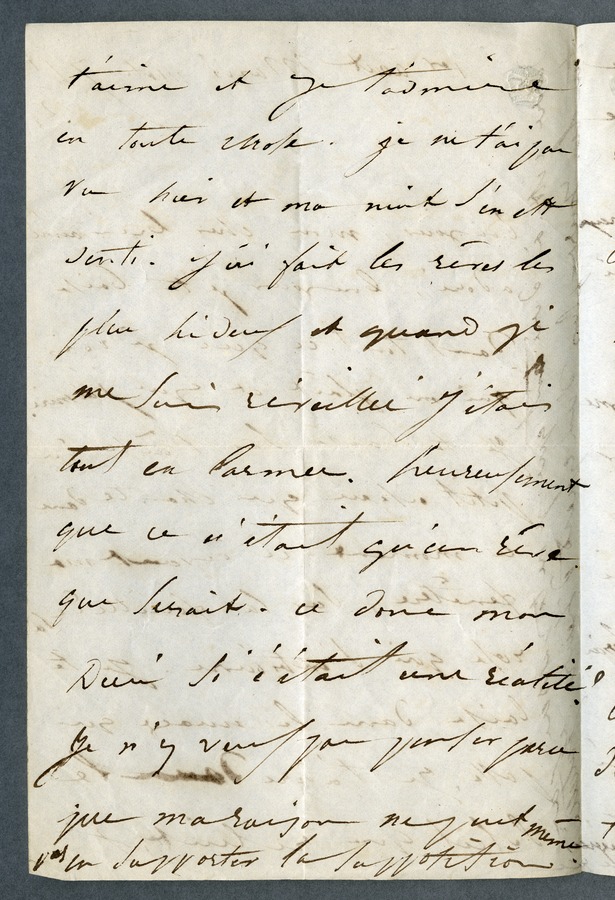 t'aime et je t'admire
en toute chose. je ne t'ai pas
vu hier et ma nuit s'en est
senti. J'ai fait les rêves les
plus hideux et quand je
me suis réveillée j'étais
tout en larmes. heureusement
que ce n'était qu'un rêve.
que serait-ce donc mon
Dieu si c'était une réalité?
Je n'y veux pas penser parce
que ma raison ne peut même
pas en supporter la supposition.